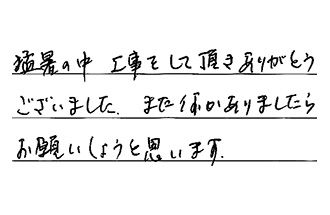 猛暑の中 工事をして頂きありがとう
ございました. また何かありましたら
お願いしようと思います.